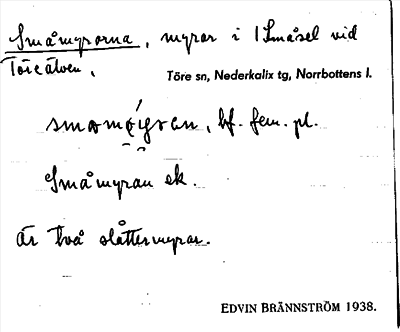 Småmyrorna, myror i Småsel vid
Töreälven.
Töre sn, Nederkalix tg, Norrbottens l.
bf. fem. pl.
Småmyran ek.
är två slåttermyrar.
EDVIN BRÄNNSTRÖM 1938.